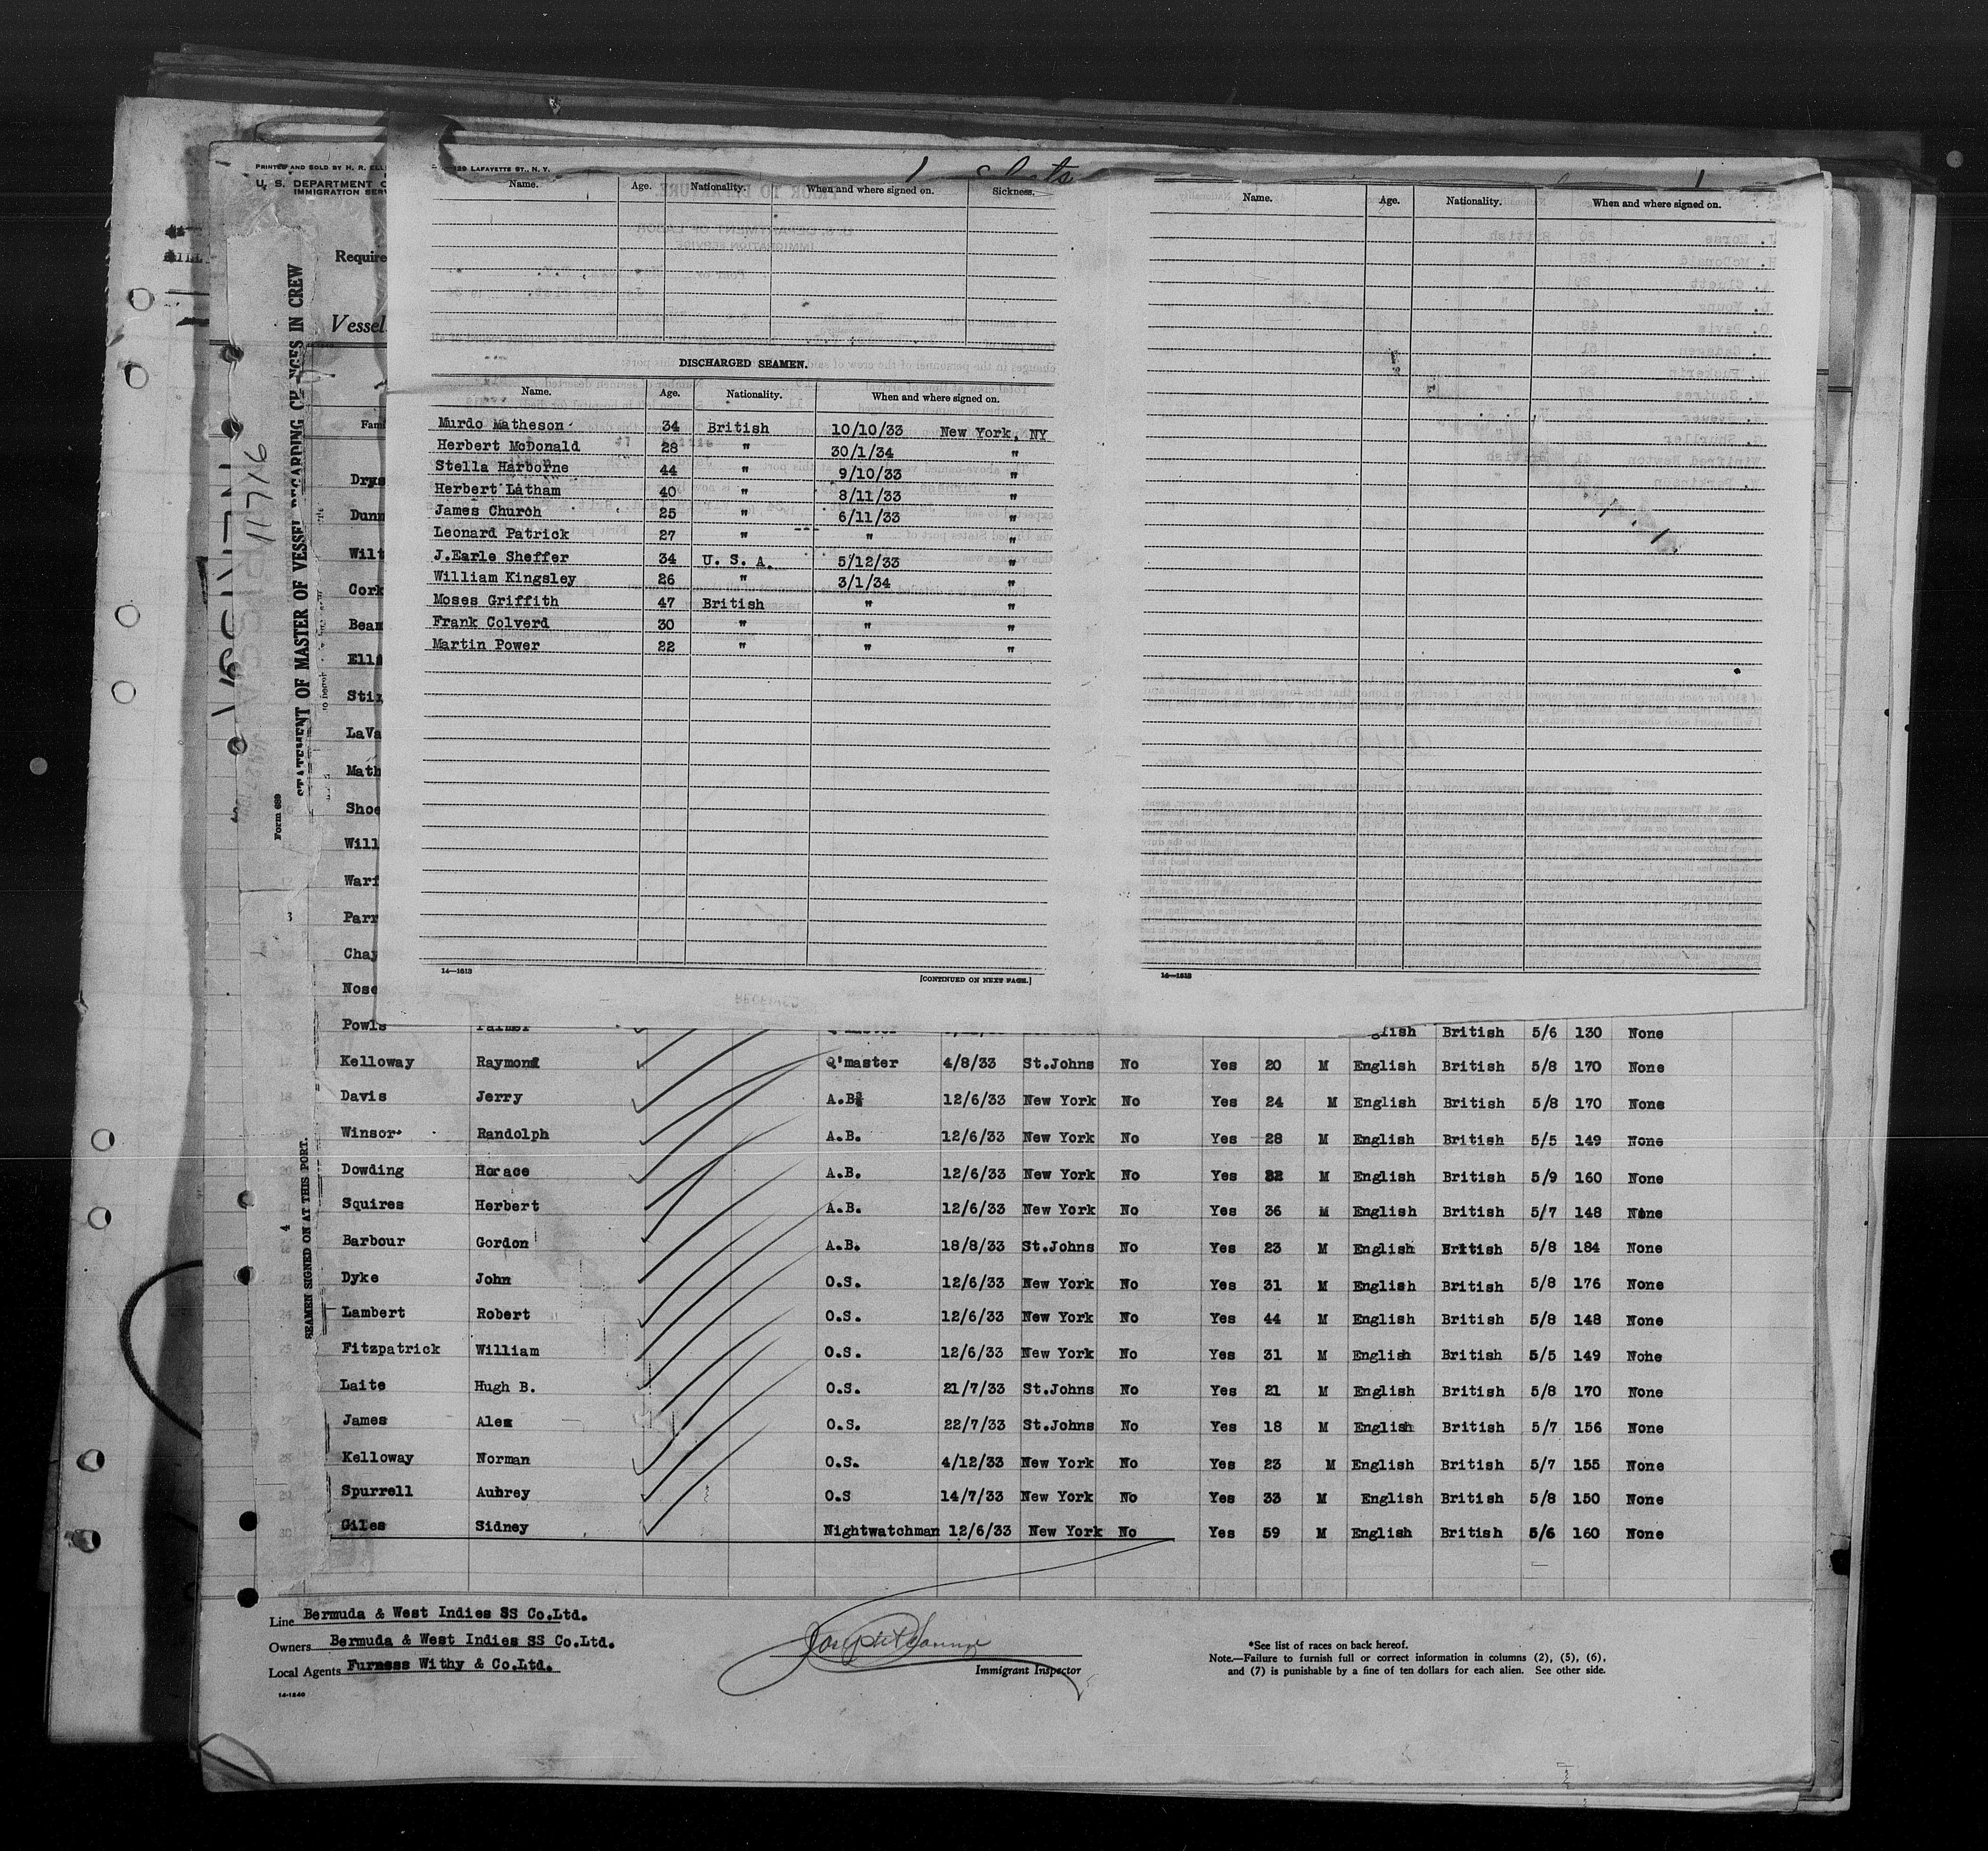 PRINTED AND SOLD BY H. R. ELL
LAFAYETTE ST., N. Y.
U. S. DEPARTMENT O
IMMIGRATION SER
Require
Vessel
Fami
STATEMENT OF MASTER OF VESSEL REGARDING CHANGES IN CREW
Form 689
SEAMEN SIGNED ON AT THIS PORT.
11716
Name. Age. Nationality. When and where signed on. Sickness.
DISCHARGED SEAMEN.
Name. Age. Nationality. When and where signed on.
Murdo Matheson 34 British 10/10/33 New York, NY
Herbert McDonald 28 " 30/1/34 "
Stella Harborne 44 " 9/10/33 "
Herbert Latham 40 " 8/11/33 "
James Church 25 " 6/11/33 "
Leonard Patrick 27 " " "
J.Earle Sheffer 34 U. S. A. 5/12/33 "
William Kingsley 26 " 3/1/34 "
Moses Griffith 47 British " "
Frank Colverd 30 " " "
Martin Power 22 " " "
14—1513
[CONTINUED ON NEXT PAGE.]
Name. Age. Nationality. When and where signed on.
14—1513
Drys
Dunn
Wilt
Cork
Beam
Elli
LaVa
Math
Shoe
Will
Warf
Parr
Chay
Nose
Powls Palmer glish British 5/6 130 None
Kelloway Raymond Q'master 4/8/33 St.Johns No Yes 20 M English British 5/8 170 None
18 Davis Jerry A.B. 12/6/33 New York No Yes 24 M English British 5/8 170 None
Winsor Randolph A.B. 12/6/33 New York No Yes 28 M English British 5/5 149 None
20 Dowding Horace A.B. 12/6/33 New York No Yes 32 M English British 5/9 160 None
21 Squires Herbert A.B. 12/6/33 New York No Yes 36 M English British 5/7 148 None
Barbour Gordon A.B. 18/8/33 St.Johns No Yes 23 M English British 5/8 184 None
23 Dyke John O.S. 12/6/33 New York No Yes 31 M English British 5/8 176 None
24 Lambert Robert O.S. 12/6/33 New York No Yes 44 M English British 5/8 148 None
25 Fitzpatrick William O.S. 12/6/33 New York No Yes 31 M English British 5/5 149 None
26 Laite Hugh B. O.S. 21/7/33 St.Johns No Yes 21 M English British 5/8 170 None
27 James Alex O.S. 22/7/33 St.Johns No Yes 18 M English British 5/7 156 None
28 Kelloway Norman O.S. 4/12/33 New York No Yes 23 M English British 5/7 155 None
29 Spurrell Aubrey O.S 14/7/33 New York No Yes 33 M English British 5/8 150 None
30 Giles Sidney Nightwatchman 12/6/33 New York No Yes 59 M English British 5/6 160 None
Line Bermuda & West Indies SS Co.Ltd.
Owners Bermuda & West Indies SS Co.Ltd.
Local Agents Furness Withy & Co.Ltd.
14-1240
Immigrant Inspector
*See list of races on back hereof.
Note.—Failure to furnish full or correct information in columns (2), (5), (6),
and (7) is punishable by a fine of ten dollars for each alien. See other side.